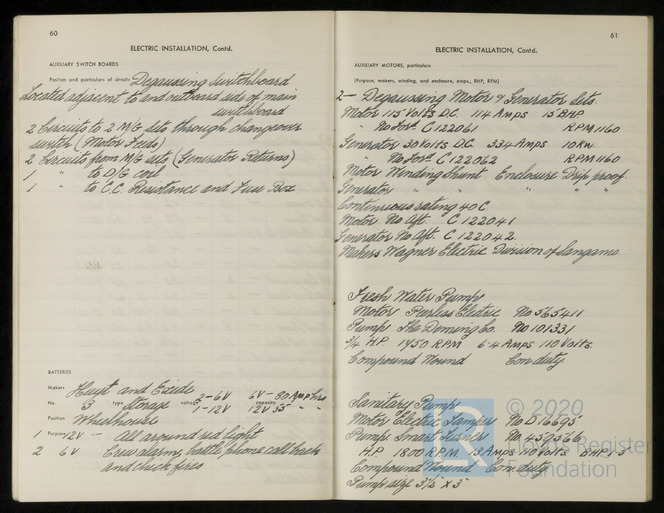 60
ELECTRIC INSTALLATION, Contd.
AUXILIARY SWITCH BOARDS
Position and particulars of circuits Degaussing Switchboard
Located adjacent to and outboard side of main
switchboard
2 Circuits to 2 M/G sets through changeover
switch (Motor Feeds)
2 Circuits from M/G sets (Generator Returns)
1 " to D/G coil
1 " to C.C. Resistance and Fuse Box
BATTERIES
Makers Hurst and Exide
No. 3 type Storage voltage 2-6V 1-12V capacity 6V-80 Amp hrs 12V 55 " "
Position Wheelhouse
1 Purpose 12V - All around red light
2 6V Crew alarm, battle phone call back
and chick fires
61
ELECTRIC INSTALLATION, Contd.
AUXILIARY MOTORS, particulars
(Purpose, makers, winding, and enclosure, amps., BHP, RPM)
2 - Degaussing Motor & Generator Sets.
Motor 115 Volts D.C. 114 Amps 15 BHP
" No For. C 122061 RPM 1160
Generator 30 Volts D.C. 334 Amps 10 Kw.
" No For. C 122062 RPM 1160
Motor Winding Shunt Enclosure Drip proof.
Generator " " " "
Continuous rating 40 C
Motor No Aft. C 122041
Generator No Aft. C 122042.
Makers Wagner Electric Division of Sangamo
Fresh Water Pump
Motor Peerless Electric No 365411
Pump The Deming Co. No 101331
3/4 H.P. 1750 RPM 6.4 Amps 110 Volts.
Compound Wound Con. duty.
Sanitary Pump
Motor Electric No D.16695
Pump Smart Turner No 457366
H.P. 1800 R.P.M. 13 Amps 110 Volts BHP 1.5
Compound Wound Con. duty
Pump size 3½" x 3"
© 2020
Lloyd's Register
Foundation